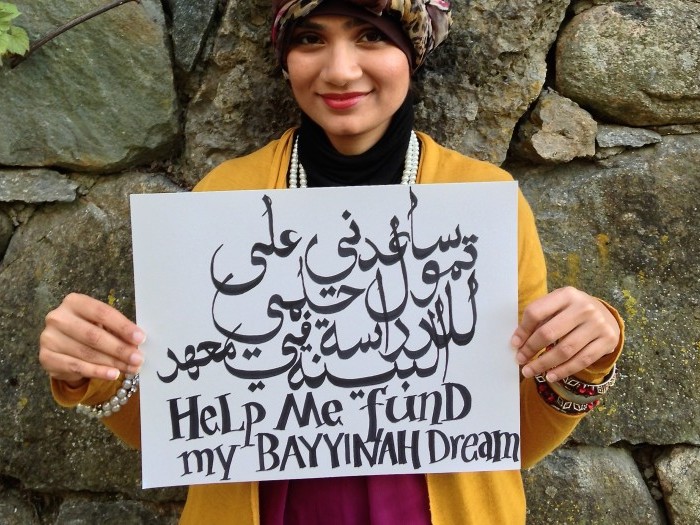 ساعدني على
تمول حلمي
للدراسة في معهد
البينة
HeLp Me fund
my BAYYINAH Dream